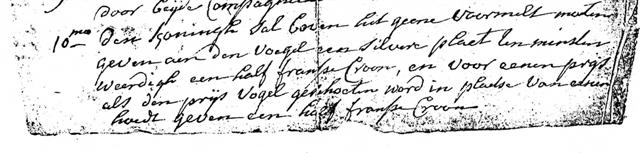 door beyde Compagnie
10 mo den Koningh sal boven het geene voormelt moeten
geven aen den voegel een silvere plaet ten minsten
weerdigh een half franse Croon, en voor eenen prys
als den prijs vogel geschoten word in plaetse van eenen
hoedt geven een half franse Croon